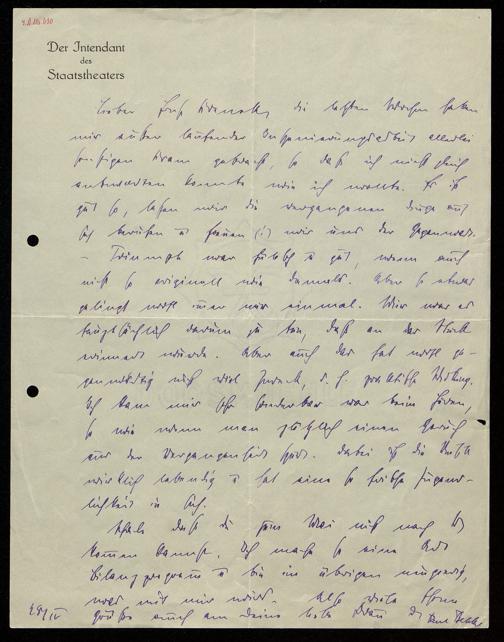 Der Intendant
des
Staatstheaters
Lieber Ernst Krenek, die letzten Wochen haben
mir außer laufender Inszenierungsarbeit allerlei
sonstigen Kram gebracht, so daß ich nicht gleich
antworten konnte wie ich wollte. Es ist
gut so, lassen wir die vergangenen Dinge auf
sich beruhen u freuen (?) wir uns der Gegenwart.
– Triumph war hübsch u gut, wenn auch
nicht so originell wie damals. Aber so etwas
gelingt wohl immer nur einmal. Mir war es
hauptsächlich darum zu tun, daß an das Stück
erinnert würde. Aber auch das hat wohl ge-
genwärtig nicht viel Zweck, d. h. praktische Wirkung.
Ich kam mir sehr sonderbar vor beim Hören,
so wie wenn man plötzlich einen Geruch
aus der Vergangenheit spürt. Dabei ist die Musik
wirklich lebendig u hat eine so frische Jugend-
lichkeit in sich.
Schade daß du zum Mai nicht nach
kommen kannst. Ich mache so eine Art
Bilanzprogramm u bin im übrigen neugierig,
was mit mir wird. Also viele
Grüße auch an deine liebe Frau